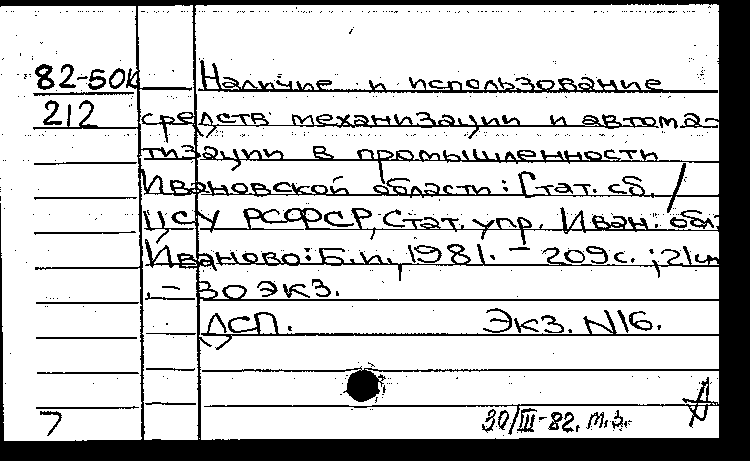 82-50к Наличие и использование
212 средств механизации и автома-
тизации в промышленности
Ивановской области: [Стат. сб. /
ЦСУ РСФСР, Стат. упр. Иван. обл.
Иваново: Б.и., 1981. - 209с.; 21см
. - 30 экз.
ДСП. Экз. N16.
7 30/III-82. т.з.